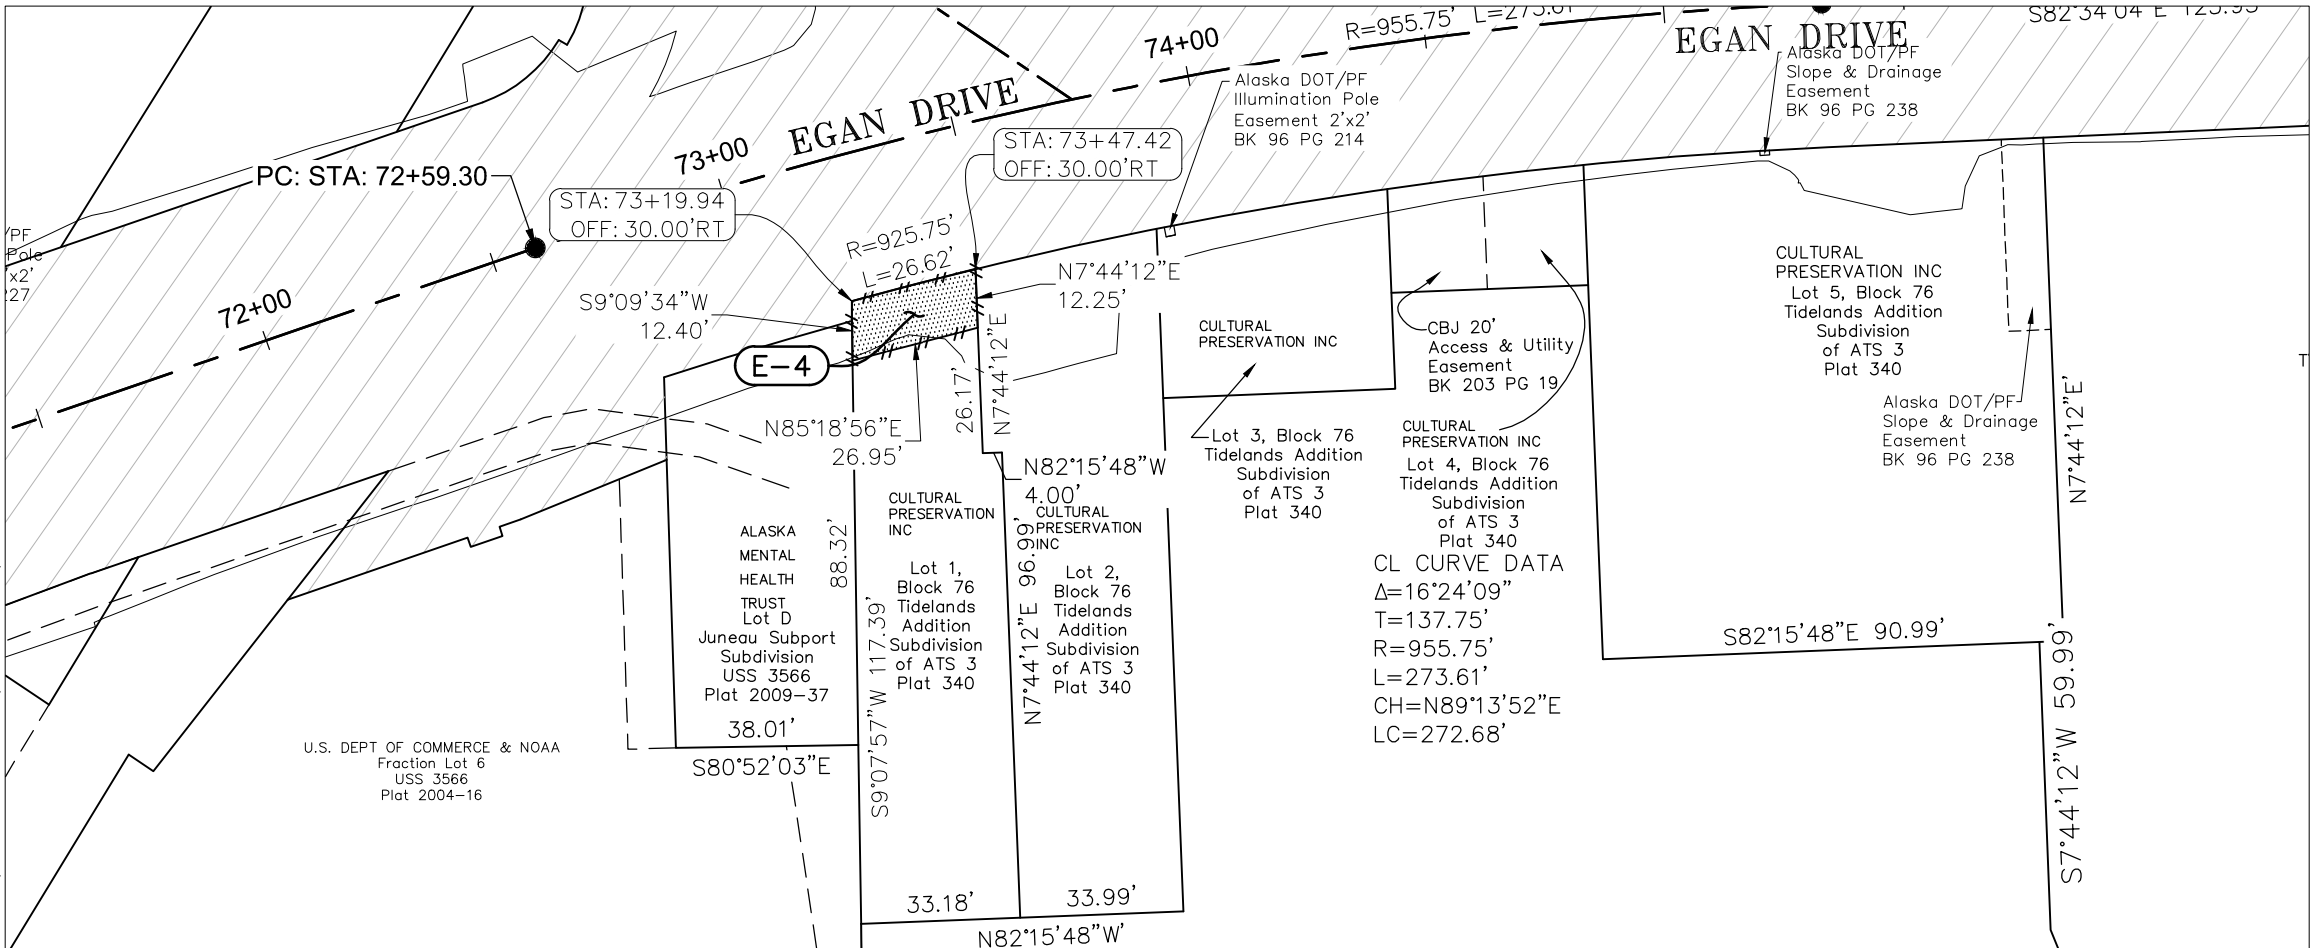 R=955.75' L=273.61'
S82°34'04"E 125.95'
74+00
EGAN DRIVE
Alaska DOT/PF
Slope & Drainage
Easement
BK 96 PG 238
Alaska DOT/PF
Illumination Pole
Easement 2'x2'
BK 96 PG 214
EGAN DRIVE
73+00
STA: 73+47.42
OFF: 30.00'RT
PC: STA: 72+59.30
STA: 73+19.94
OFF: 30.00'RT
/PF
Pole
'x2'
27
R=925.75'
L=26.62'
N7°44'12"E
12.25'
S9°09'34"W
12.40'
72+00
E-4
26.17'
N7°44'12"E
N85°18'56"E
26.95'
N82°15'48"W
4.00'
CULTURAL
PRESERVATION INC
Lot 3, Block 76
Tidelands Addition
Subdivision
of ATS 3
Plat 340
CBJ 20'
Access & Utility
Easement
BK 203 PG 19
CULTURAL
PRESERVATION INC
Lot 4, Block 76
Tidelands Addition
Subdivision
of ATS 3
Plat 340
CULTURAL
PRESERVATION INC
Lot 5, Block 76
Tidelands Addition
Subdivision
of ATS 3
Plat 340
Alaska DOT/PF
Slope & Drainage
Easement
BK 96 PG 238
N7°44'12"E'
T
ALASKA
MENTAL
HEALTH
TRUST
Lot D
Juneau Subport
Subdivision
USS 3566
Plat 2009-37
88.32'
38.01'
S80°52'03"E
CULTURAL
PRESERVATION
INC
Lot 1,
Block 76
Tidelands
Addition
Subdivision
of ATS 3
Plat 340
S9°07'57"W 117.39'
CULTURAL
PRESERVATION
INC
Lot 2,
Block 76
Tidelands
Addition
Subdivision
of ATS 3
Plat 340
N7°44'12"E 96.99'
CL CURVE DATA
Δ=16°24'09"
T=137.75'
R=955.75'
L=273.61'
CH=N89°13'52"E
LC=272.68'
S82°15'48"E 90.99'
S7°44'12"W 59.99'
U.S. DEPT OF COMMERCE & NOAA
Fraction Lot 6
USS 3566
Plat 2004-16
33.18'
33.99'
N82°15'48"W'